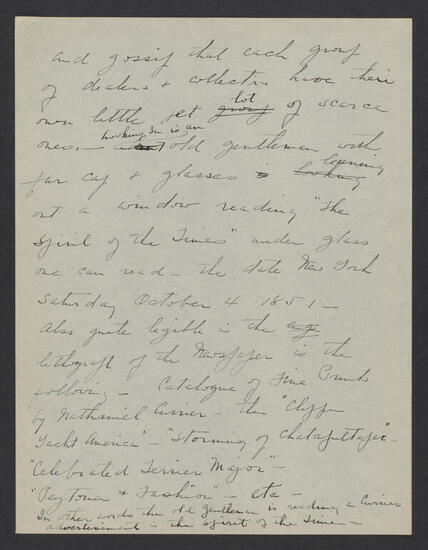 and gossip that each group
of dealers & collectors have their
own little pet group lot of scarce
ones. — Looking In is an old gentleman with
fur cap & glasses is looking leaning
out a window reading "The
Spirit of the Times" under glass
one can read — the date New York
Saturday October 4 1851 —
Also quite legible in the
lithograph of the Newspaper is the
following — Catalogue of Fine Prints
by Nathaniel Currier — the "Clipper
Yacht America" — "Storming of Chatapultapec" —
"Celebrated Terrier Major" —
"Peytona & Fashion" — etc —
In other words the old gentleman is reading a Currier
advertisement in the Spirit of the Times —